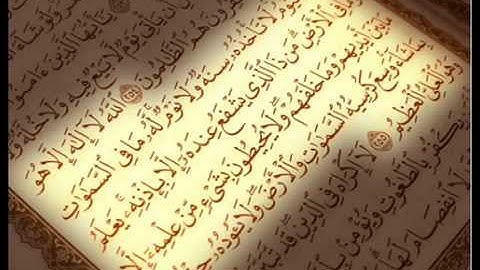 يَٰٓأَيُّهَا ٱلَّذِينَ ءَامَنُوٓا۟
أَن يَأْتِىَ يَوْمٌ لَّا بَيْعٌ فِيهِ وَلَا خُلَّةٌ
هُمُ ٱلظَّٰلِمُونَ ٢٥٤ ٱللَّهُ لَآ إِلَٰهَ إِلَّا هُوَ
تَأْخُذُهُۥ سِنَةٌ وَلَا نَوْمٌ لَّهُۥ مَا فِى ٱلسَّمَٰوَٰتِ
ٱلْأَرْضِ مَن ذَا ٱلَّذِى يَشْفَعُ عِندَهُۥٓ إِلَّا بِإِذْنِهِۦ يَعْلَمُ
أَيْدِيهِمْ وَمَا خَلْفَهُمْ وَلَا يُحِيطُونَ بِشَىْءٍ مِّنْ عِلْمِهِۦٓ إِلَّا
شَآءَ وَسِعَ كُرْسِيُّهُ ٱلسَّمَٰوَٰتِ وَٱلْأَرْضَ وَلَا يَـُٔودُهُۥ
وَهُوَ ٱلْعَلِىُّ ٱلْعَظِيمُ ٢٥٥ لَآ إِكْرَاهَ فِى ٱلدِّينِ قَد تَّبَيَّنَ
يَكْفُرْ بِٱلطَّٰغُوتِ وَيُؤْمِنۢ
لَا ٱنفِصَامَ لَهَا